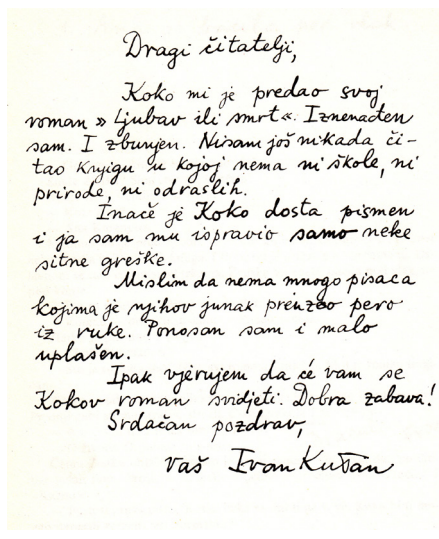 Dragi čitatelji,
Koko mi je predao svoj
roman » Ljubav ili smrt «. Iznenađen
sam. I zbunjen. Nisam još nikada či-
tao knjigu u kojoj nema ni škole, ni
prirode, ni odraslih.
Inače je Koko dosta pismen
i ja sam mu ispravio samo neke
sitne greške.
Mislim da nema mnogo pisaca
kojima je njihov junak preuzeo pero
iz ruke. Ponosan sam i malo
uplašen.
Ipak vjerujem da će vam se
Kokov roman svidjeti. Dobra zabava!
Srdačan pozdrav,
vaš Ivan Kušan